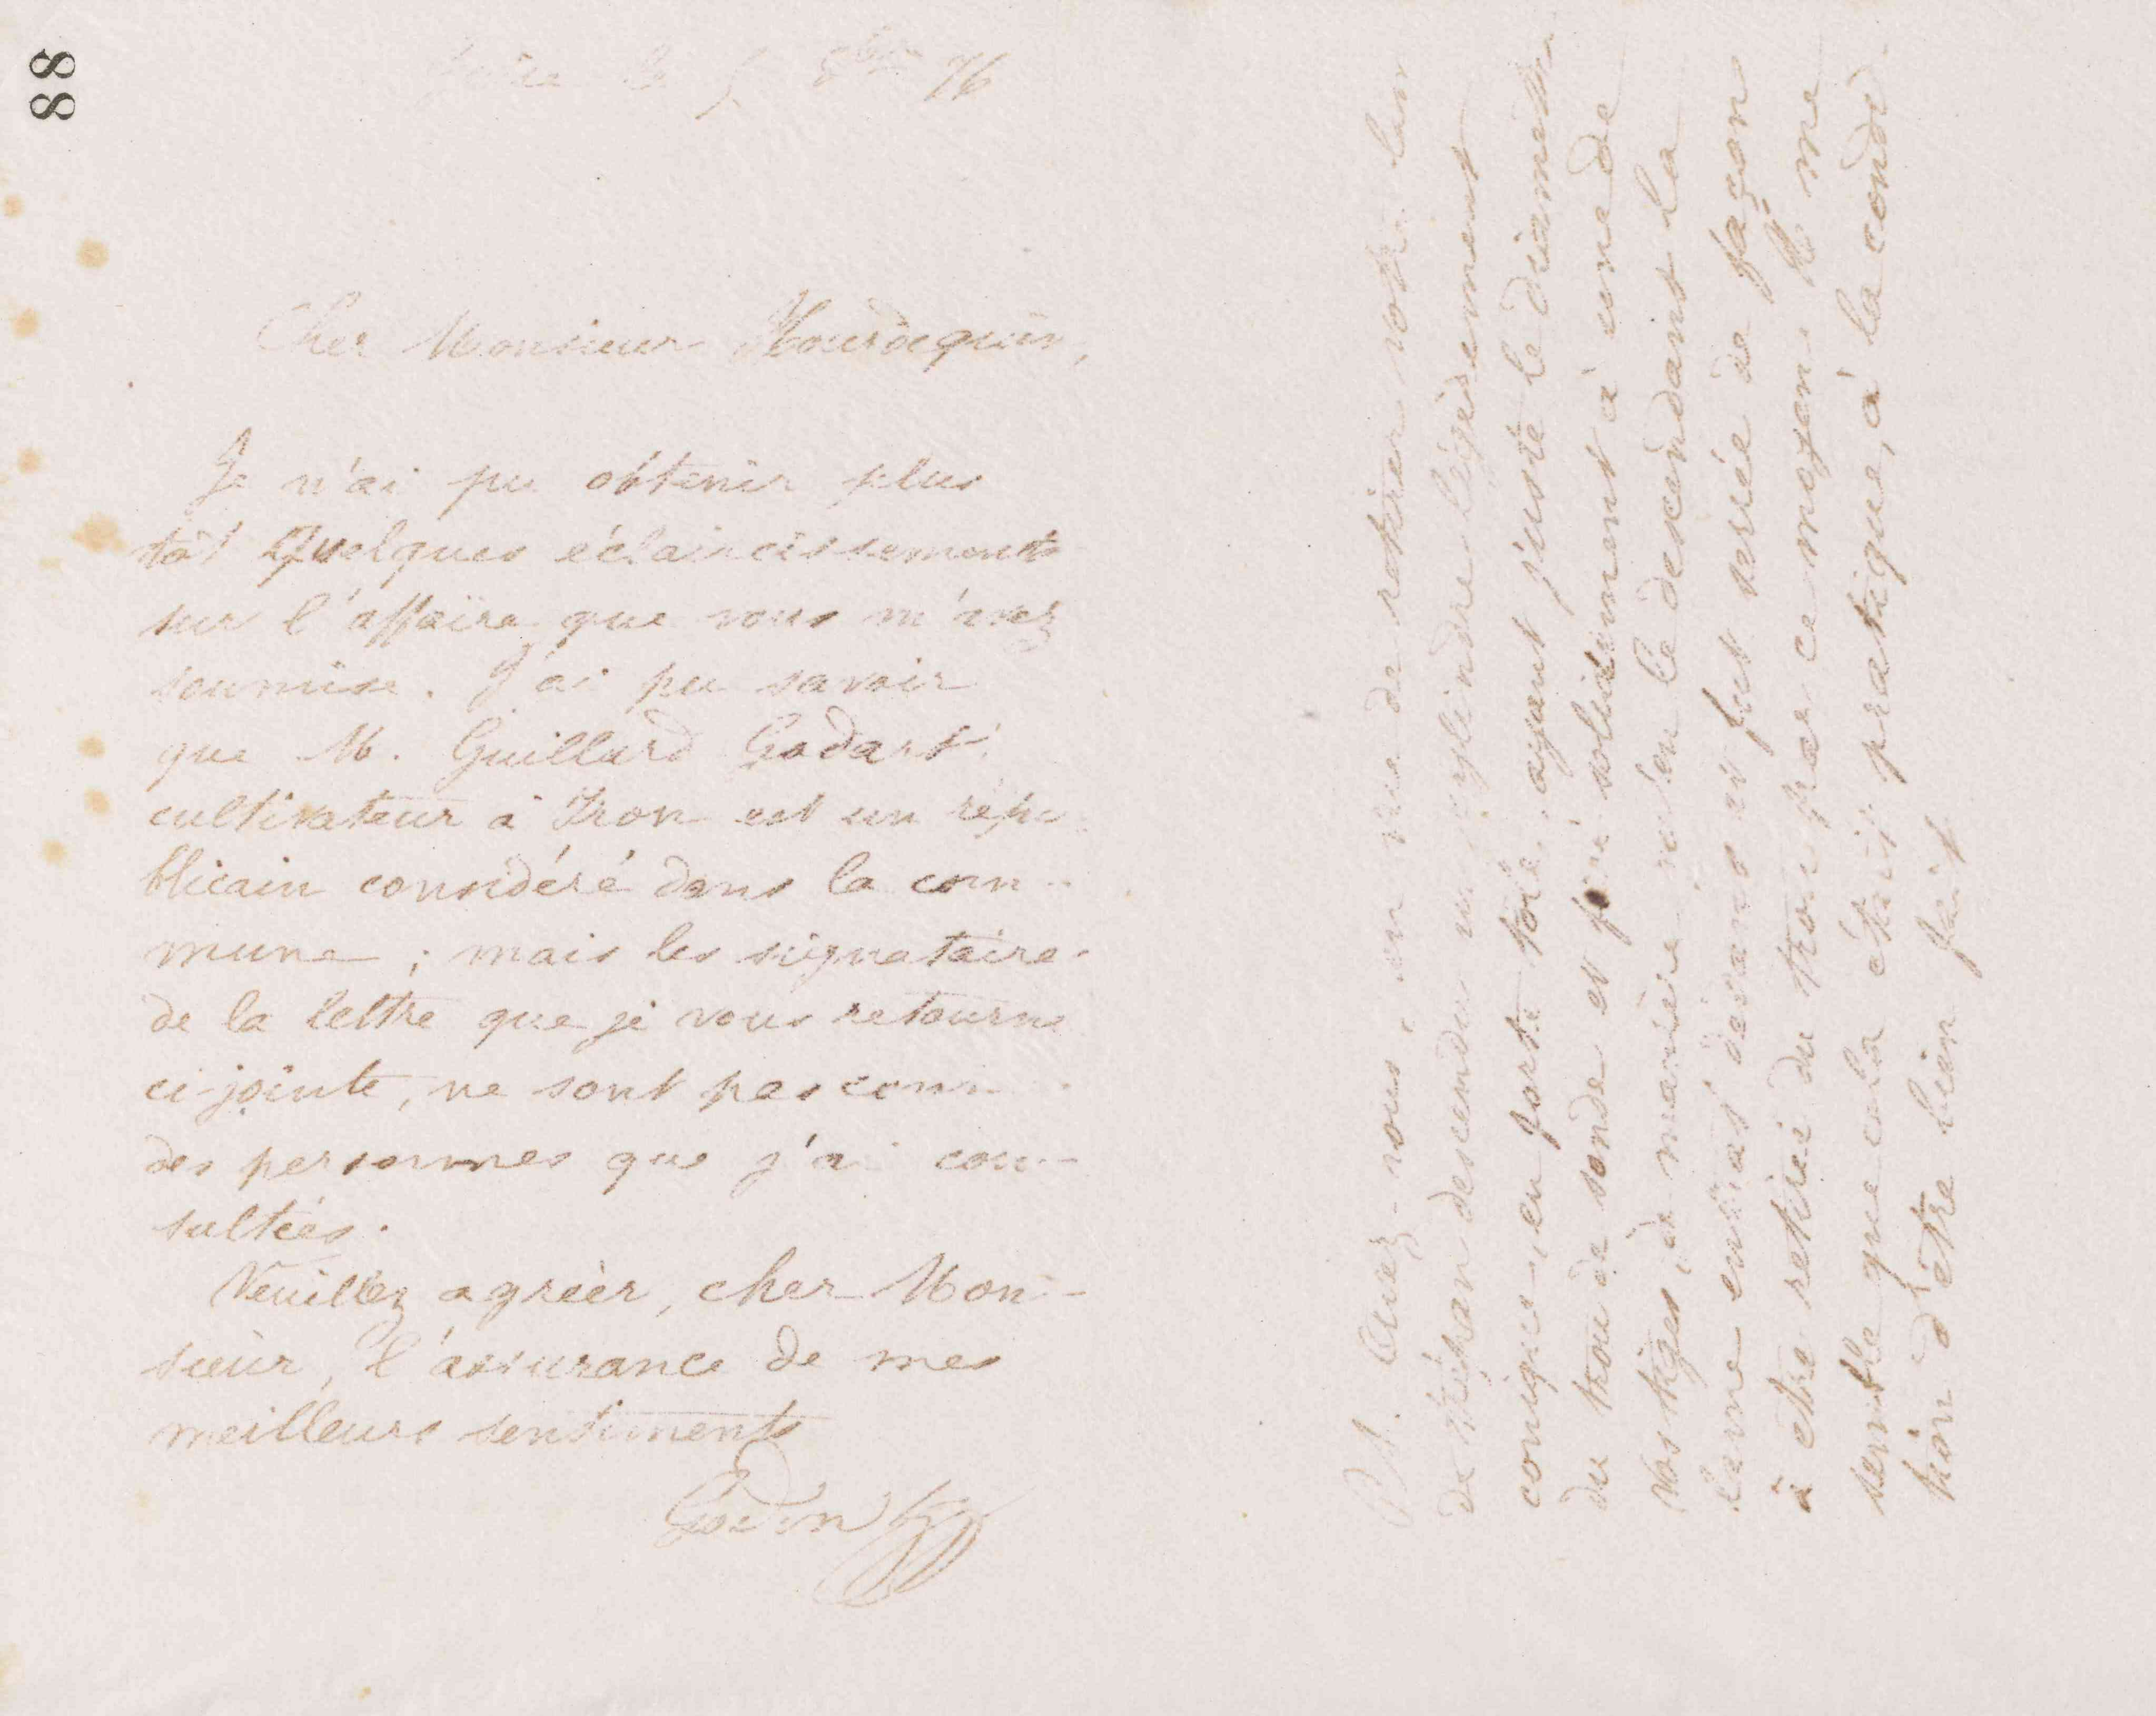 88
le 5 8bre 76
Cher Monsieur Hourdequin,
Je n'ai pu obtenir plus
tôt quelques éclaircissements
sur l'affaire que vous m'avez
soumise. J'ai pu savoir
que M. Guillard Godart
cultivateur à Iron est un répu
blicain considéré dans la com-
mune ; mais les signataires
de la lettre que je vous retourne
ci-jointe, ne sont pas connus
des personnes que j'ai con-
sultées.
Veuillez agréer, cher Mon-
sieur, l'assurance de mes
meilleurs sentiments
Godin
P.S. Avez-vous, en vue de retirer votre lame
de trépan descendu un cylindre légèrement
conique, en forte tôle, ayant juste le diamètre
du trou de sonde et fixé solidement à une de
vos tiges, de manière qu'en le descendant la
lame entrât dedans et fut serrée de façon
à être retirée du trou par ce moyen. Il me
semble que cela était pratique, à la condi-
tion d'être bien fait.